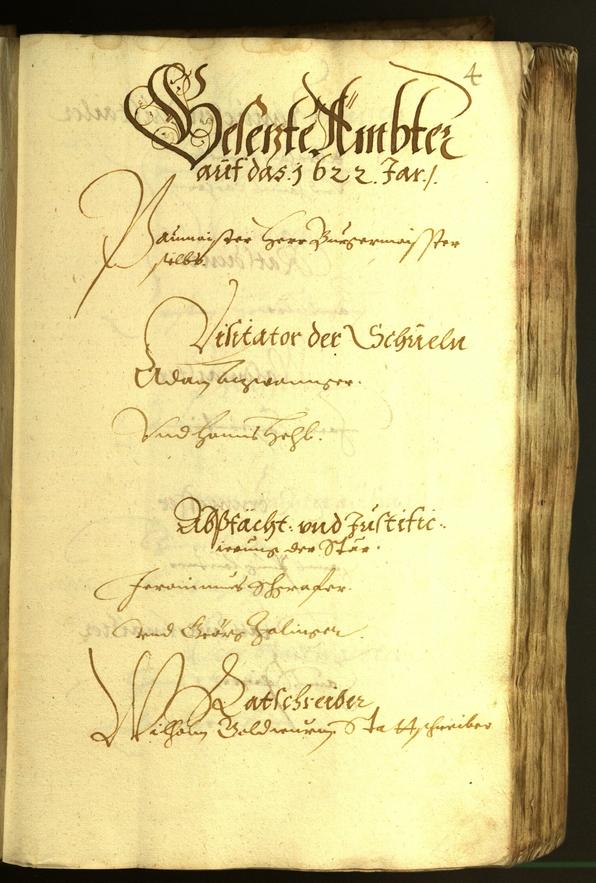 4
Besetzte Ämbter
auf das 1622. Jar /.
Paumaister Herr Burgermaisster
selbs
Visitator der Schueln
Adam
Und Hanns Hehl.
Abßfächt: und Justific:
ierung der Stär.
Jeronimus Schrafer.
Und Georg
Ratschreiber
Wilhelm Geldwurm Stattschreiber